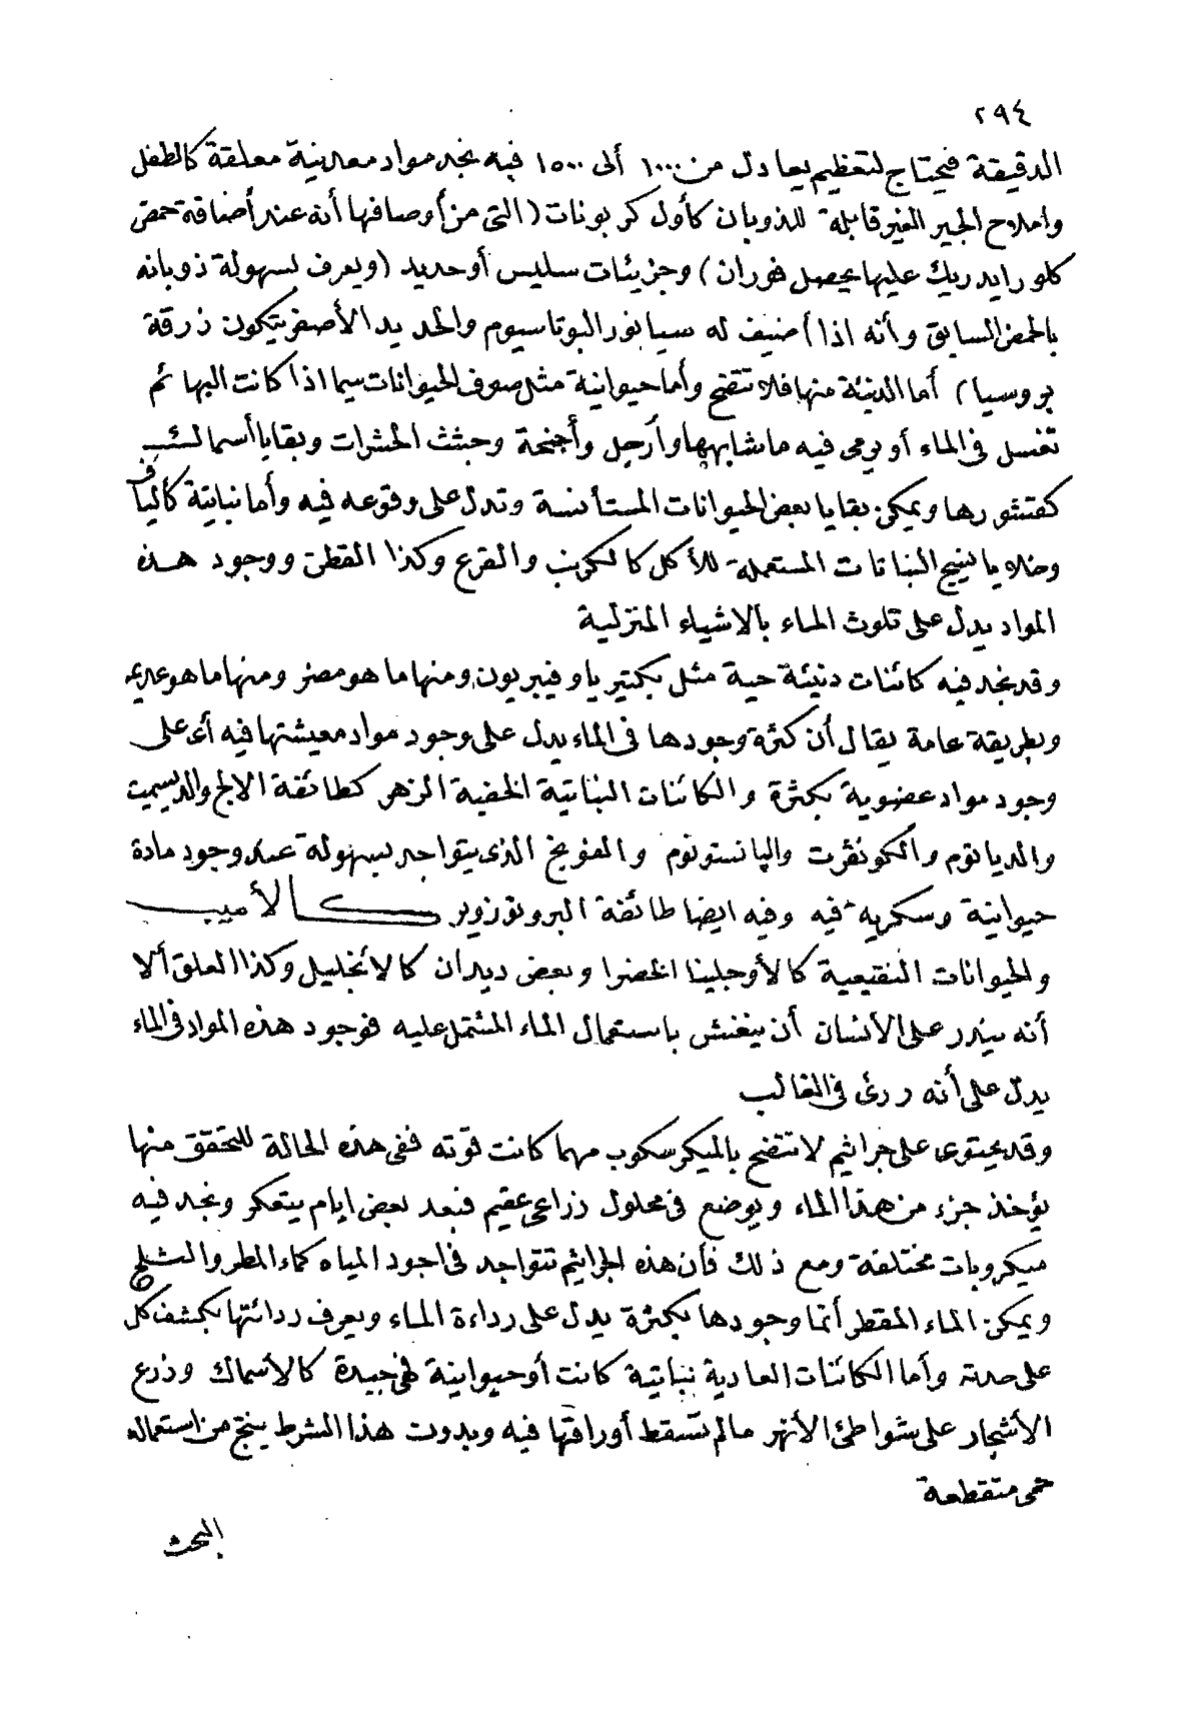 ٢٩٤
الدقيقة فيحتاج لتعظيم يعادل من ١٠٠٠ ألى ١٥٠٠ فيه نجد مواد معدنية معلقة كالطفل
واملاح الجير الغير قابلة للذوبان كأول كربونات (التى من أوصافها أنه عند أضافة حمض
كلورايدريك عليها يحصل فوران) وجزيئات سليس أوحديد (ويعرف لسهولة ذوبانه
بالحمض السابق وأنه اذا أضيف له سيانور البوتاسيوم والحديد الأصفر يتكون زرقة
بروسيا) أما الدنيئة منها فلا تتضح وأما حيوانية مثل صوف الحيوانات سيما اذا كانت البهائم
تغسل فى الماء أو يرمى فيه ما شابهها وأرجل وأجنحة وجثث الحشرات وبقايا أسماك
كقشورها ويمكن بقايا بعض الحيوانات المستأنسة وتدل على وقوعه فيه وأما نباتية كألياف
وخلايا نسيج النباتات المستعملة للأكل كالكرنب والقرع وكذا القطن ووجود هذه
المواد يدل على تلوث الماء بالاشياء المنزلية
وقد نجد فيه كائنات دنيئة حية مثل بكتيريا وفيبريون ومنها ما هو مضر ومنها ما هو عديمه
وبطريقة عامة يقال أن كثرة وجودها فى الماء يدل على وجود مواد معيشتها فيه أى على
وجود مواد عضوية بكثرة والكائنات النباتية الخفية الزهر كطائفة الالج والديسميت
والدياتوم والكونفرت والپانستونوم والفونج الذى يتواجد بسهولة عند وجود مادة
حيوانية وسكرية فيه وفيه ايضا طائفة البروتوزوير كالأميب
والحيوانات النقيعية كالأوجلينا الخضرا وبعض ديدان كالانجليل وكذا العلق ألا
أنه يندر على الأنسان أن ينغش باستعمال الماء المشتمل عليه فوجود هذه المواد فى الماء
يدل على أنه ردئ فى الغالب
وقد يحتوى على جراثيم لا تتضح بالميكرسكوب مهما كانت قوته ففى هذه الحالة للتحقق منها
يؤخذ جزء من هذا الماء ويوضع فى محلول زراعى عقيم فبعد بعض ايام يتعكر ونجد فيه
ميكروبات مختلفة ومع ذلك فأن هذه الجراثيم تتواجد فى اجود المياه كماء المطر والثلج
ويمكن الماء المقطر أنما وجودها بكثرة يدل على رداءة الماء ويعرف ردائتها بكشف كل
على حدته وأما الكائنات العادية نباتية كانت أوحيوانية فهى جيدة كالأسماك وزرع
الأشجار على شواطئ الأنهر مالم تسقط أوراقها فيه وبدون هذا الشرط ينتج من استعماله
حمى متقطعة
البحث